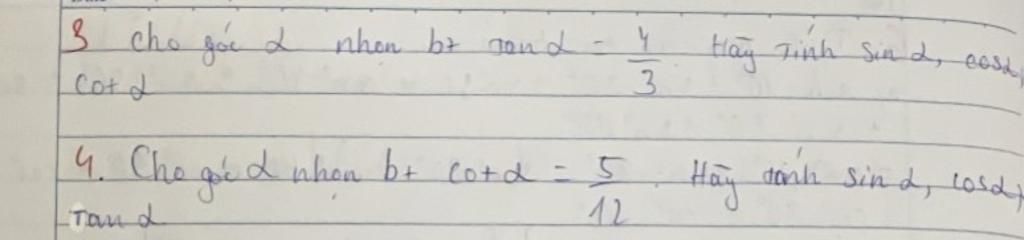 3 Cho góc α nhọn bt tanα = 4/3 Hãy tính sin α, cosα,
cot α
4. Cho góc α nhọn bt cotα = 5/12. Hãy tính sin α, cosα,
Tan α